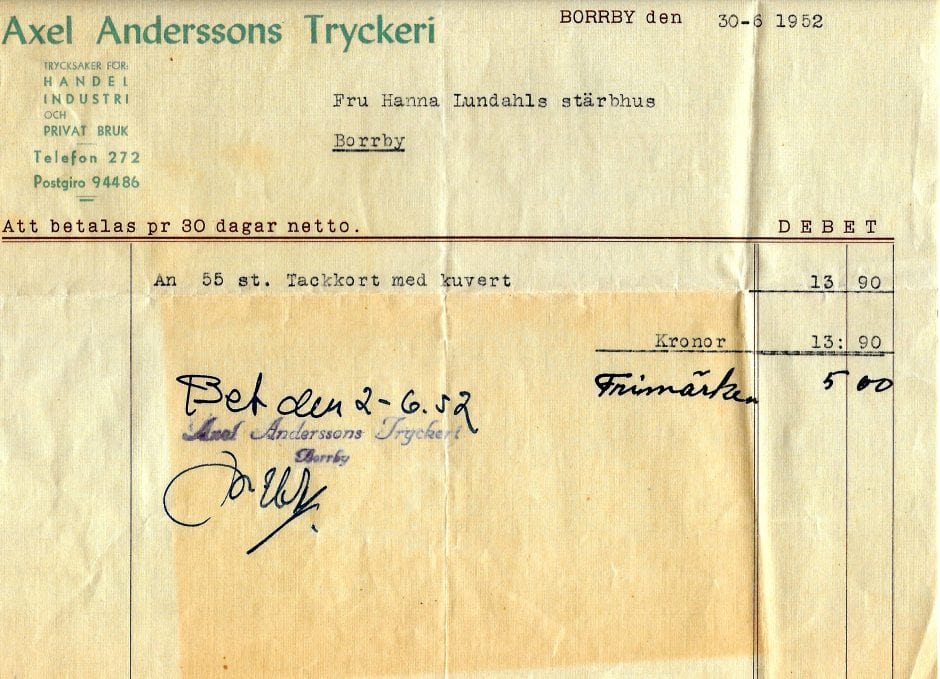 Axel Anderssons Tryckeri
BORRBY den 30-6 1952
TRYCKSAKER FÖR:
HANDEL
INDUSTRI
OCH
PRIVAT BRUK
Telefon 272
Postgiro 94486
Fru Hanna Lundahls stärbhus
Borrby
Att betalas pr 30 dagar netto. DEBET
An 55 st. Tackkort med kuvert 13 90
Kronor 13: 90
Frimärken 5 00
Bet den 2-6.52
Axel Anderssons Tryckeri
Borrby